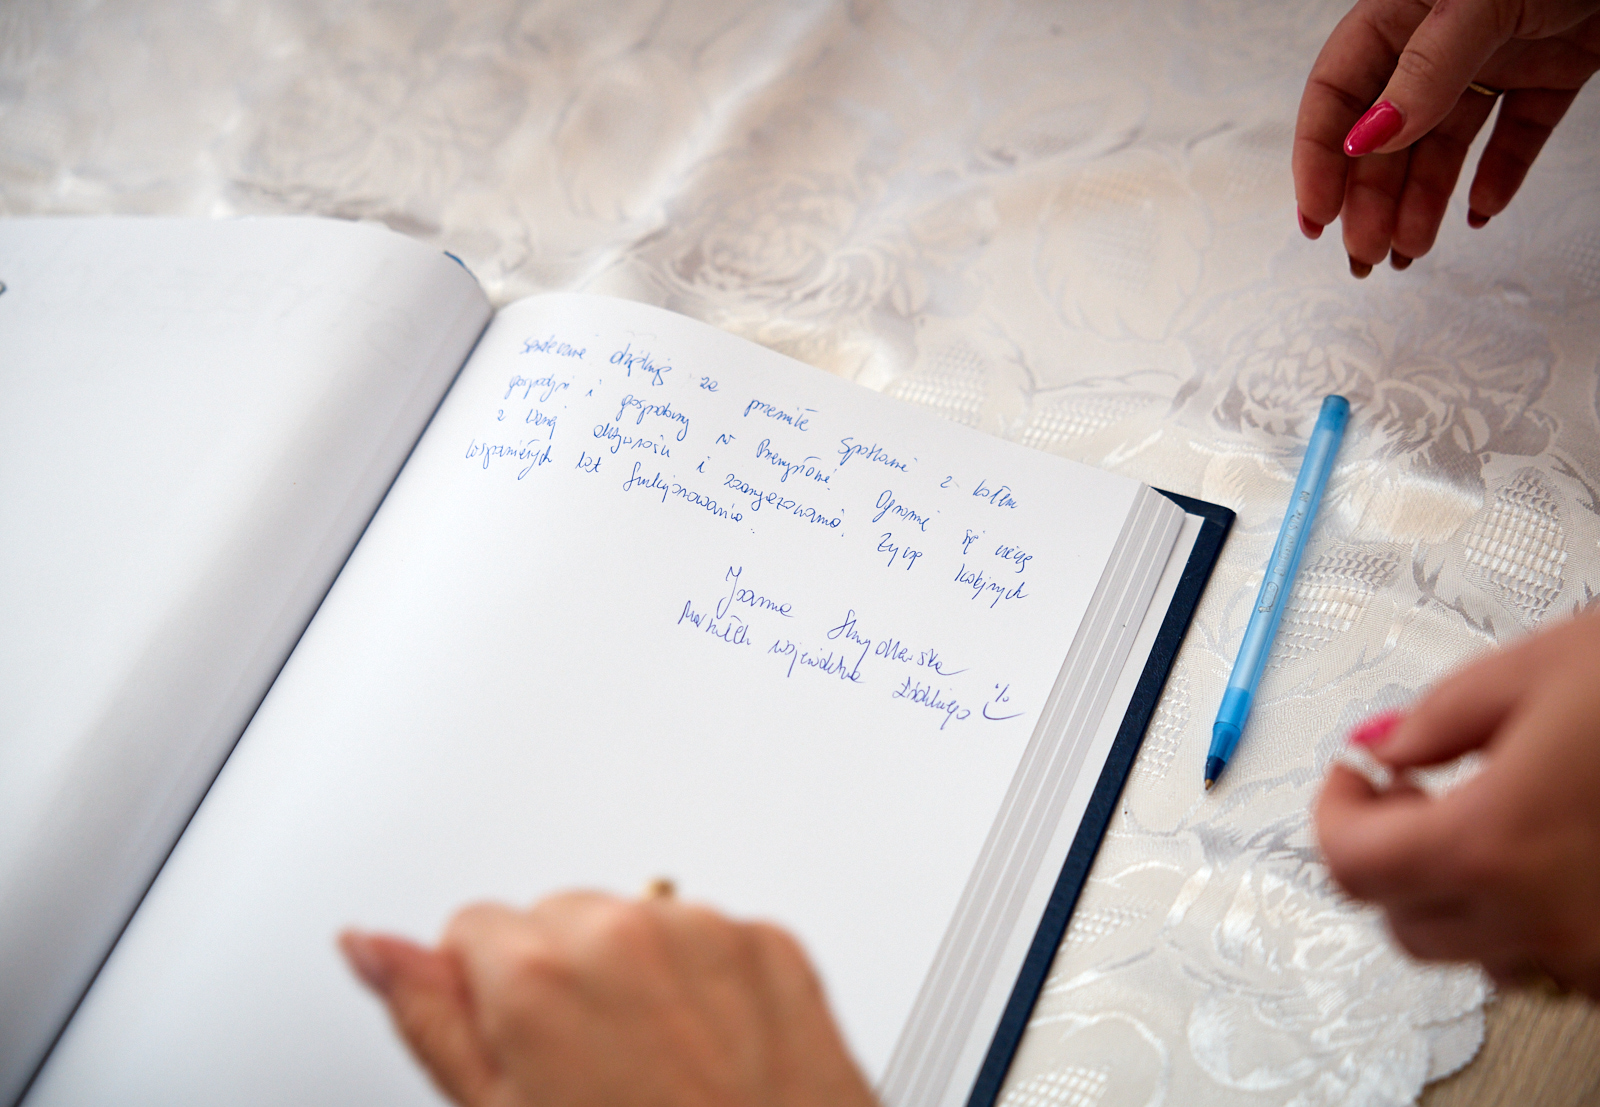 Serdecznie dziękuję za przemiłe spotkanie z kołem
gospodyń i gospodarzy w Przemysłowie. Ogromnie się cieszę
z Waszej aktywności i zaangażowania. Życzę kolejnych
wspaniałych lat funkcjonowania.
Joanna Skrzydlewska
Marszałek województwa Łódzkiego